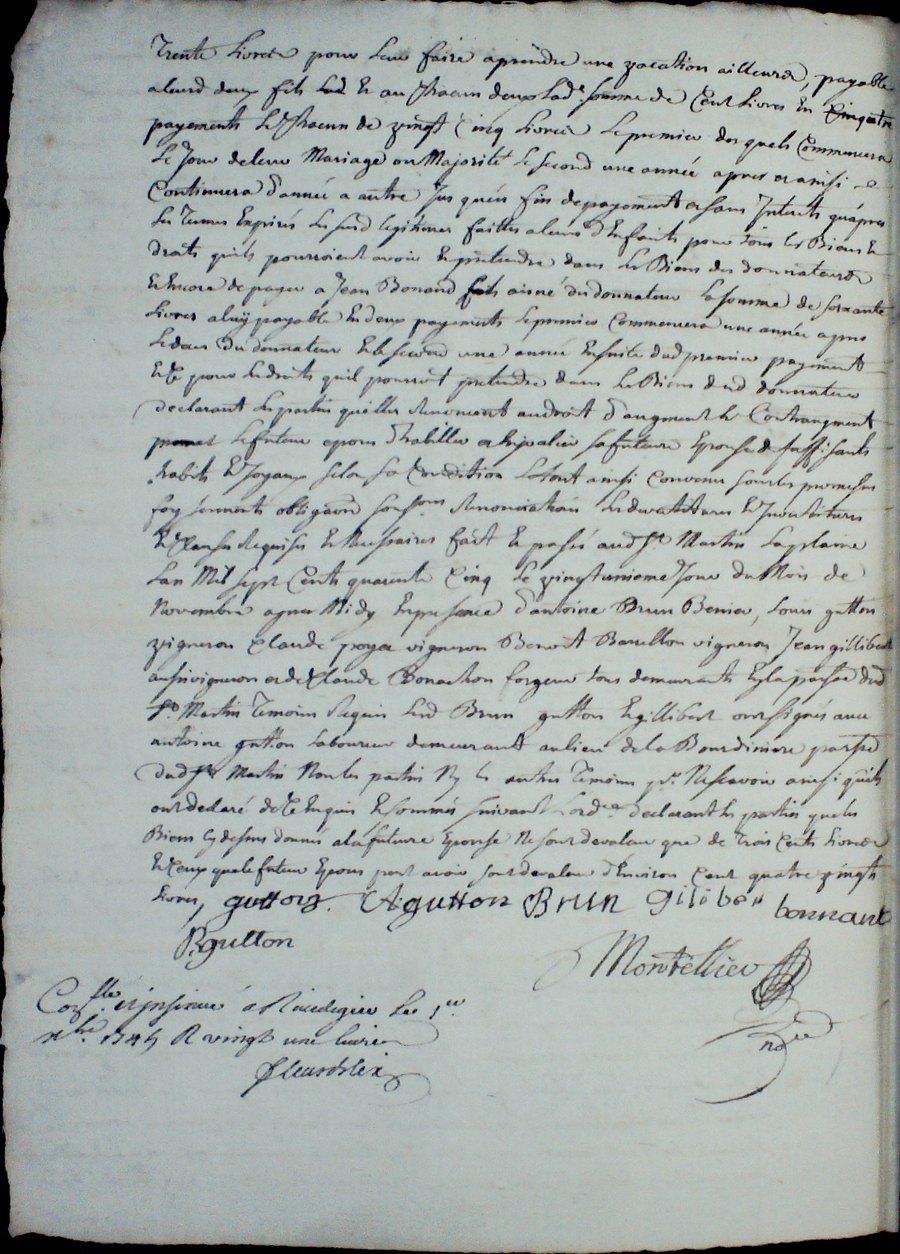 Trente Livres pour leur faire aprendre une vacation ailleurs, payable
aleurd deux fils Lad et au chacun deux Lad^e somme de Cent Livres En Cinquatre
payements Le chacun de vingt Cinq Livres Le premier des quels Commencera
Le Jour de leur Mariage ou Majorité Le second une année apres et ainsi
Continuera d'année a autre Jus qu'en fin de payement et sans Interets qu'apres
Les Termes Expirés Lesusd legitimes faittes aleurs d Enfants pour tous les Biens et
droits quils pourroient avoir et pretendre dans les Biens des donnateurs
et Encore de payer a Jean Bonnand fils aisné du donnateur La somme de soixante
Livres a luy payable En deux payements Le premier Commencera une année apres
Le deces du donnateur et le second une année En suite dud premier payement
et Ce pour les droits quil pourroit pretendre dans les Biens dud donnateur
declarant les parties quelles Renoncent au droit d'augment le Contrangment
promet le futeur epoux d'habiller et Enjoalier sa future Epouse de suffisants
habits et Joyaux selon sa Condition Le tout ainsi Convenu sous les promesses
foy serments obligaõns soubmõns Renonciations
et Clauses Requises et Necessaires fait et passés aud S^t Martin La plaine
Lan Mil sept Cents quarente Cinq Le vingtunieme Jour du Mois de
Novembre apres Midy En presence d'antoine Brun Benier, Louis gutton
vigneron Claude poyet vigneron Benoit Baulton vigneron Jean gillibert
aussi vigneron et de Claude Bonachon forgeur tous demeurants En la parroisse dud
S^t Martin Temoins Requis Lesd Brun gutton et gillibert ont signés avec
antoine gutton Laboureur demeurant au lieu de la Bourdiniere parroisse
dud S^t Martin Non les parties Ny les autres Temoins p^r Ne scavoir ainsi quils
ont declaré de Ce Enquis et sommés suivant L'ord^ce declarant les parties que les
Biens cy dessus donnés a la future Epouse Ne sont de valeur que de Trois Cents Livres
et Ceux que le futeur Epoux peut avoir sont de valeur d'Environ Cent quatre vingts
Livres, gutton. A gutton Brun gilibert bonnant
Boulton
Montellier
Con^lle et insinué a Rivedegier Le 1^er
x^bre 1745 R vingt une livre
fleurdelix
No^re